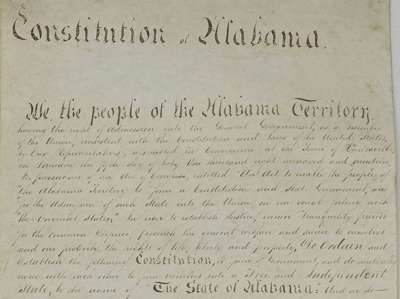 Constitution of Alabama.
We, the people of the Alabama Territory
having the right of admission into the General Government, as a member
of the Union, consistent with the Constitution and Laws of the United States,
by Our Representatives, assembled in Convention at the Town of
on Monday the fifth day of July One thousand eight hundred and nineteen
in pursuance of an Act of Congress, entitled "An Act to enable the people of
the Alabama Territory to form a Constitution and State Government, and
for the admission of such State into the Union on an equal footing with
the Original States," in order to establish Justice, ensure Tranquility, provide
for the Common Defence, promote the general welfare and secure to ourselves
and our posterity, the rights of life, liberty and property, Do Ordain and
Establish the following Constitution, or form of Government, and do mutually
agree with each other to form ourselves into a Free and Independent
State, by the name of "The State of Alabama." And we do